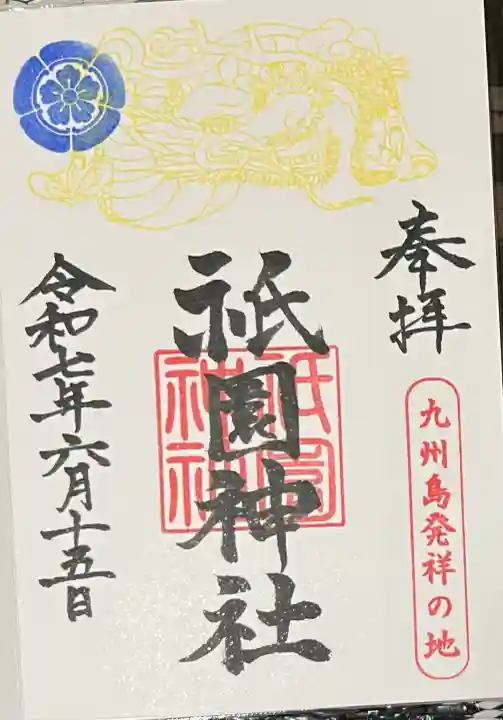 奉拝
九州島発祥の地
祇園神社
祇園
神社
令和七年六月十五日